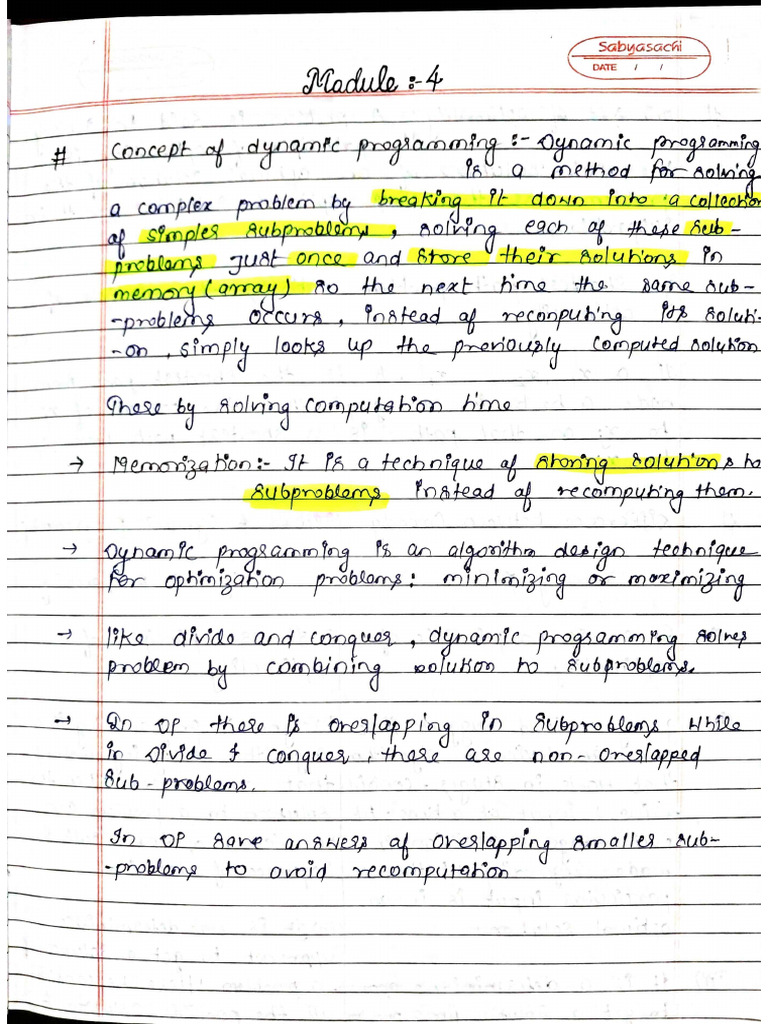 Sabyasachi
DATE / /
Module :- 4
# Concept of dynamic programming :- Dynamic programming
is a method for solving
a complex problem by breaking it down into a collection
of simpler subproblems, solving each of these sub-
problems just once and store their solutions in
memory (array) so the next time the same sub-
-problems occurs, instead of reconputing its soluti-
-on, simply looks up the previously computed solution
There by solving computation time
→ Memorization:- It is a technique of storing solutions to
subproblems instead of recomputing them.
→ Dynamic programming is an algorithm design technique
for optimization problems: minimizing or maximizing
→ like divide and conquer, dynamic programming solves
problem by combining solution to subproblems.
→ In DP there is overlapping in subproblems while
in Divide & conquer, there are non-overlapped
sub-problems.
In DP save answers of overlapping smaller sub-
-problems to avoid recomputation